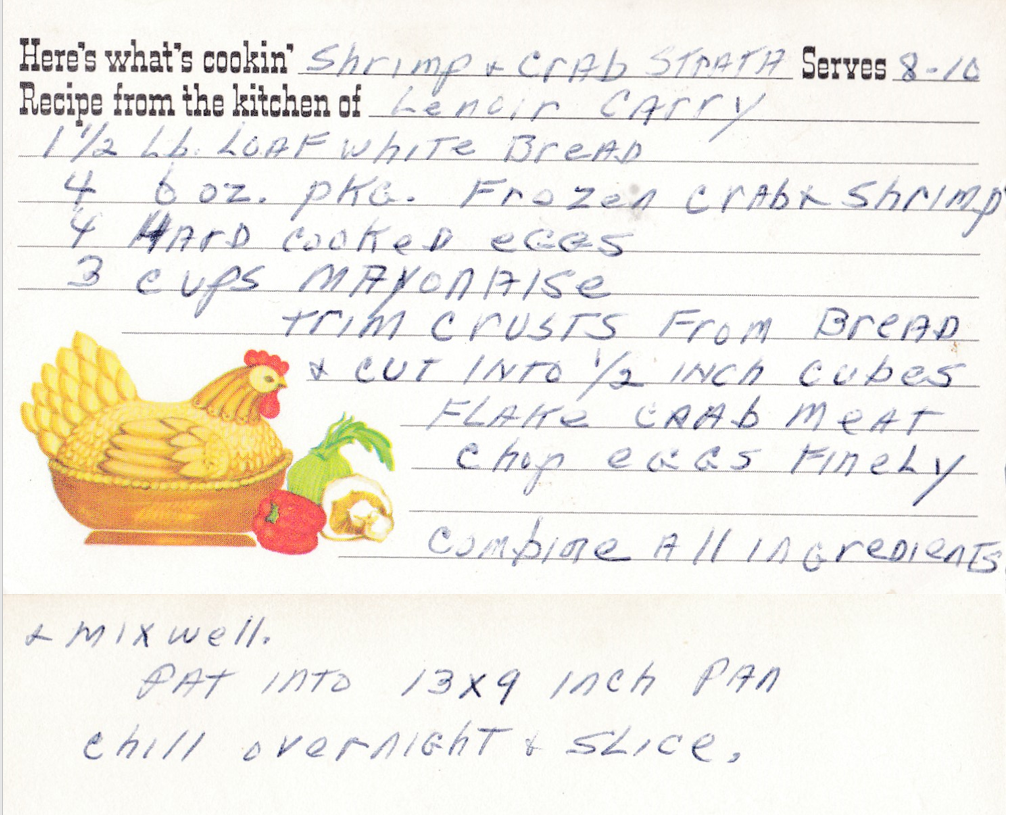 Here's what's cookin' Shrimp & CrAb STrATA Serves 8-10
Recipe from the kitchen of Lenoir CArry
1 1/2 Lb. LOAF White BreAD
4 6 oz. pKG. Frozen CrAb & Shrimp
4 HArD cooKeD eGGS
3 cups MAYonAISe
Trim CrUSTS From BreAD
& CUT INTO 1/2 INCH Cubes
FLAKe CrAb MeAT
Chop eGGS FineLy
Combine All InGreDienTS
& mix well.
PAT INTO 13x9 Inch PAn
Chill overniGhT & SLice.